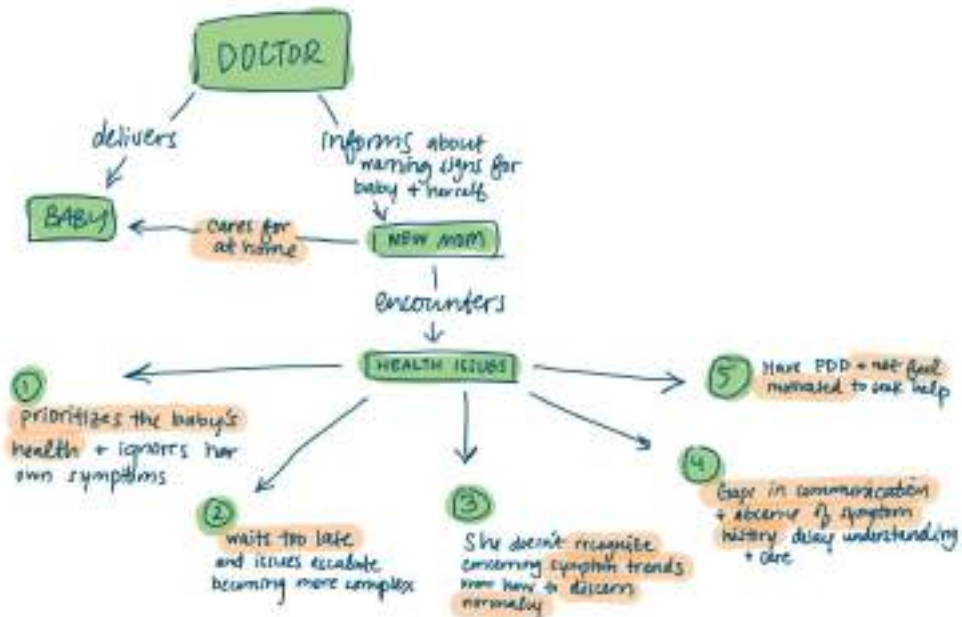 DOCTOR
delivers
informs about
warning signs for
baby + herself
BABY
cares for
at home
NEW MOM
encounters
HEALTH ISSUES
1
prioritizes the baby's
health + ignores her
own symptoms
2
waits too late
and issues escalate
becoming more complex
3
She doesn't recognize
concerning symptom trends
know how to discern
normalcy
4
Gaps in communication
+ absence of symptom
history delay understanding
+ care
5
Have PDD + not feel
motivated to seek help